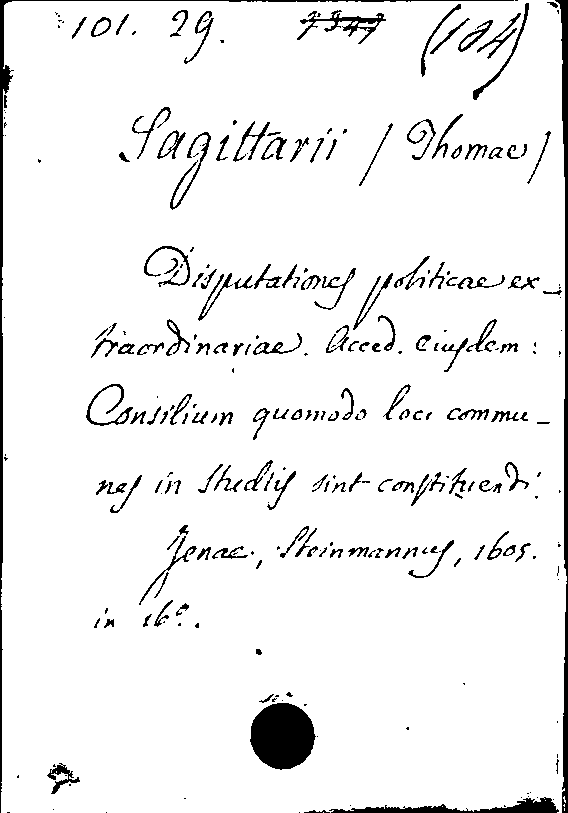 101. 29. 7347 (104)
Sagittarii / Thomae /
Disputationes politicae ex-
traordinariae. Acced. eiusdem:
Consilium quomodo loci commu-
nes in studiis sint constituendi.
Jenae, Steinmannus, 1605.
in 16°.